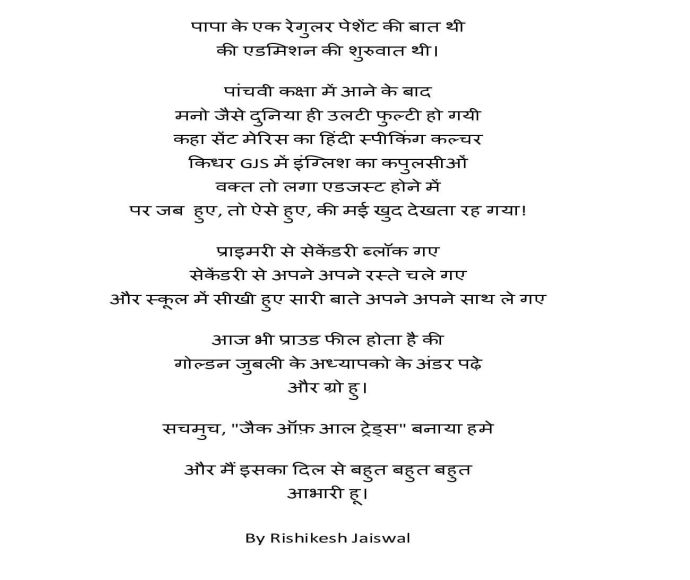 पापा के एक रेगुलर पेशेंट की बात थी
की एडमिशन की शुरुवात थी।
पांचवी कक्षा में आने के बाद
मनो जैसे दुनिया ही उलटी फुल्टी हो गयी
कहा सेंट मेरिस का हिंदी स्पीकिंग कल्चर
किधर GJS में इंग्लिश का कपुलसीऔ
वक्त तो लगा एडजस्ट होने में
पर जब हुए, तो ऐसे हुए, की मई खुद देखता रह गया!
प्राइमरी से सेकेंडरी ब्लॉक गए
सेकेंडरी से अपने अपने रस्ते चले गए
और स्कूल में सीखी हुए सारी बाते अपने अपने साथ ले गए
आज भी प्राउड फील होता है की
गोल्डन जुबली के अध्यापको के अंडर पढ़े
और ग्रो हु।
सचमुच, "जैक ऑफ़ आल ट्रेड्स" बनाया हमे
और मैं इसका दिल से बहुत बहुत बहुत
आभारी हू।
By Rishikesh Jaiswal